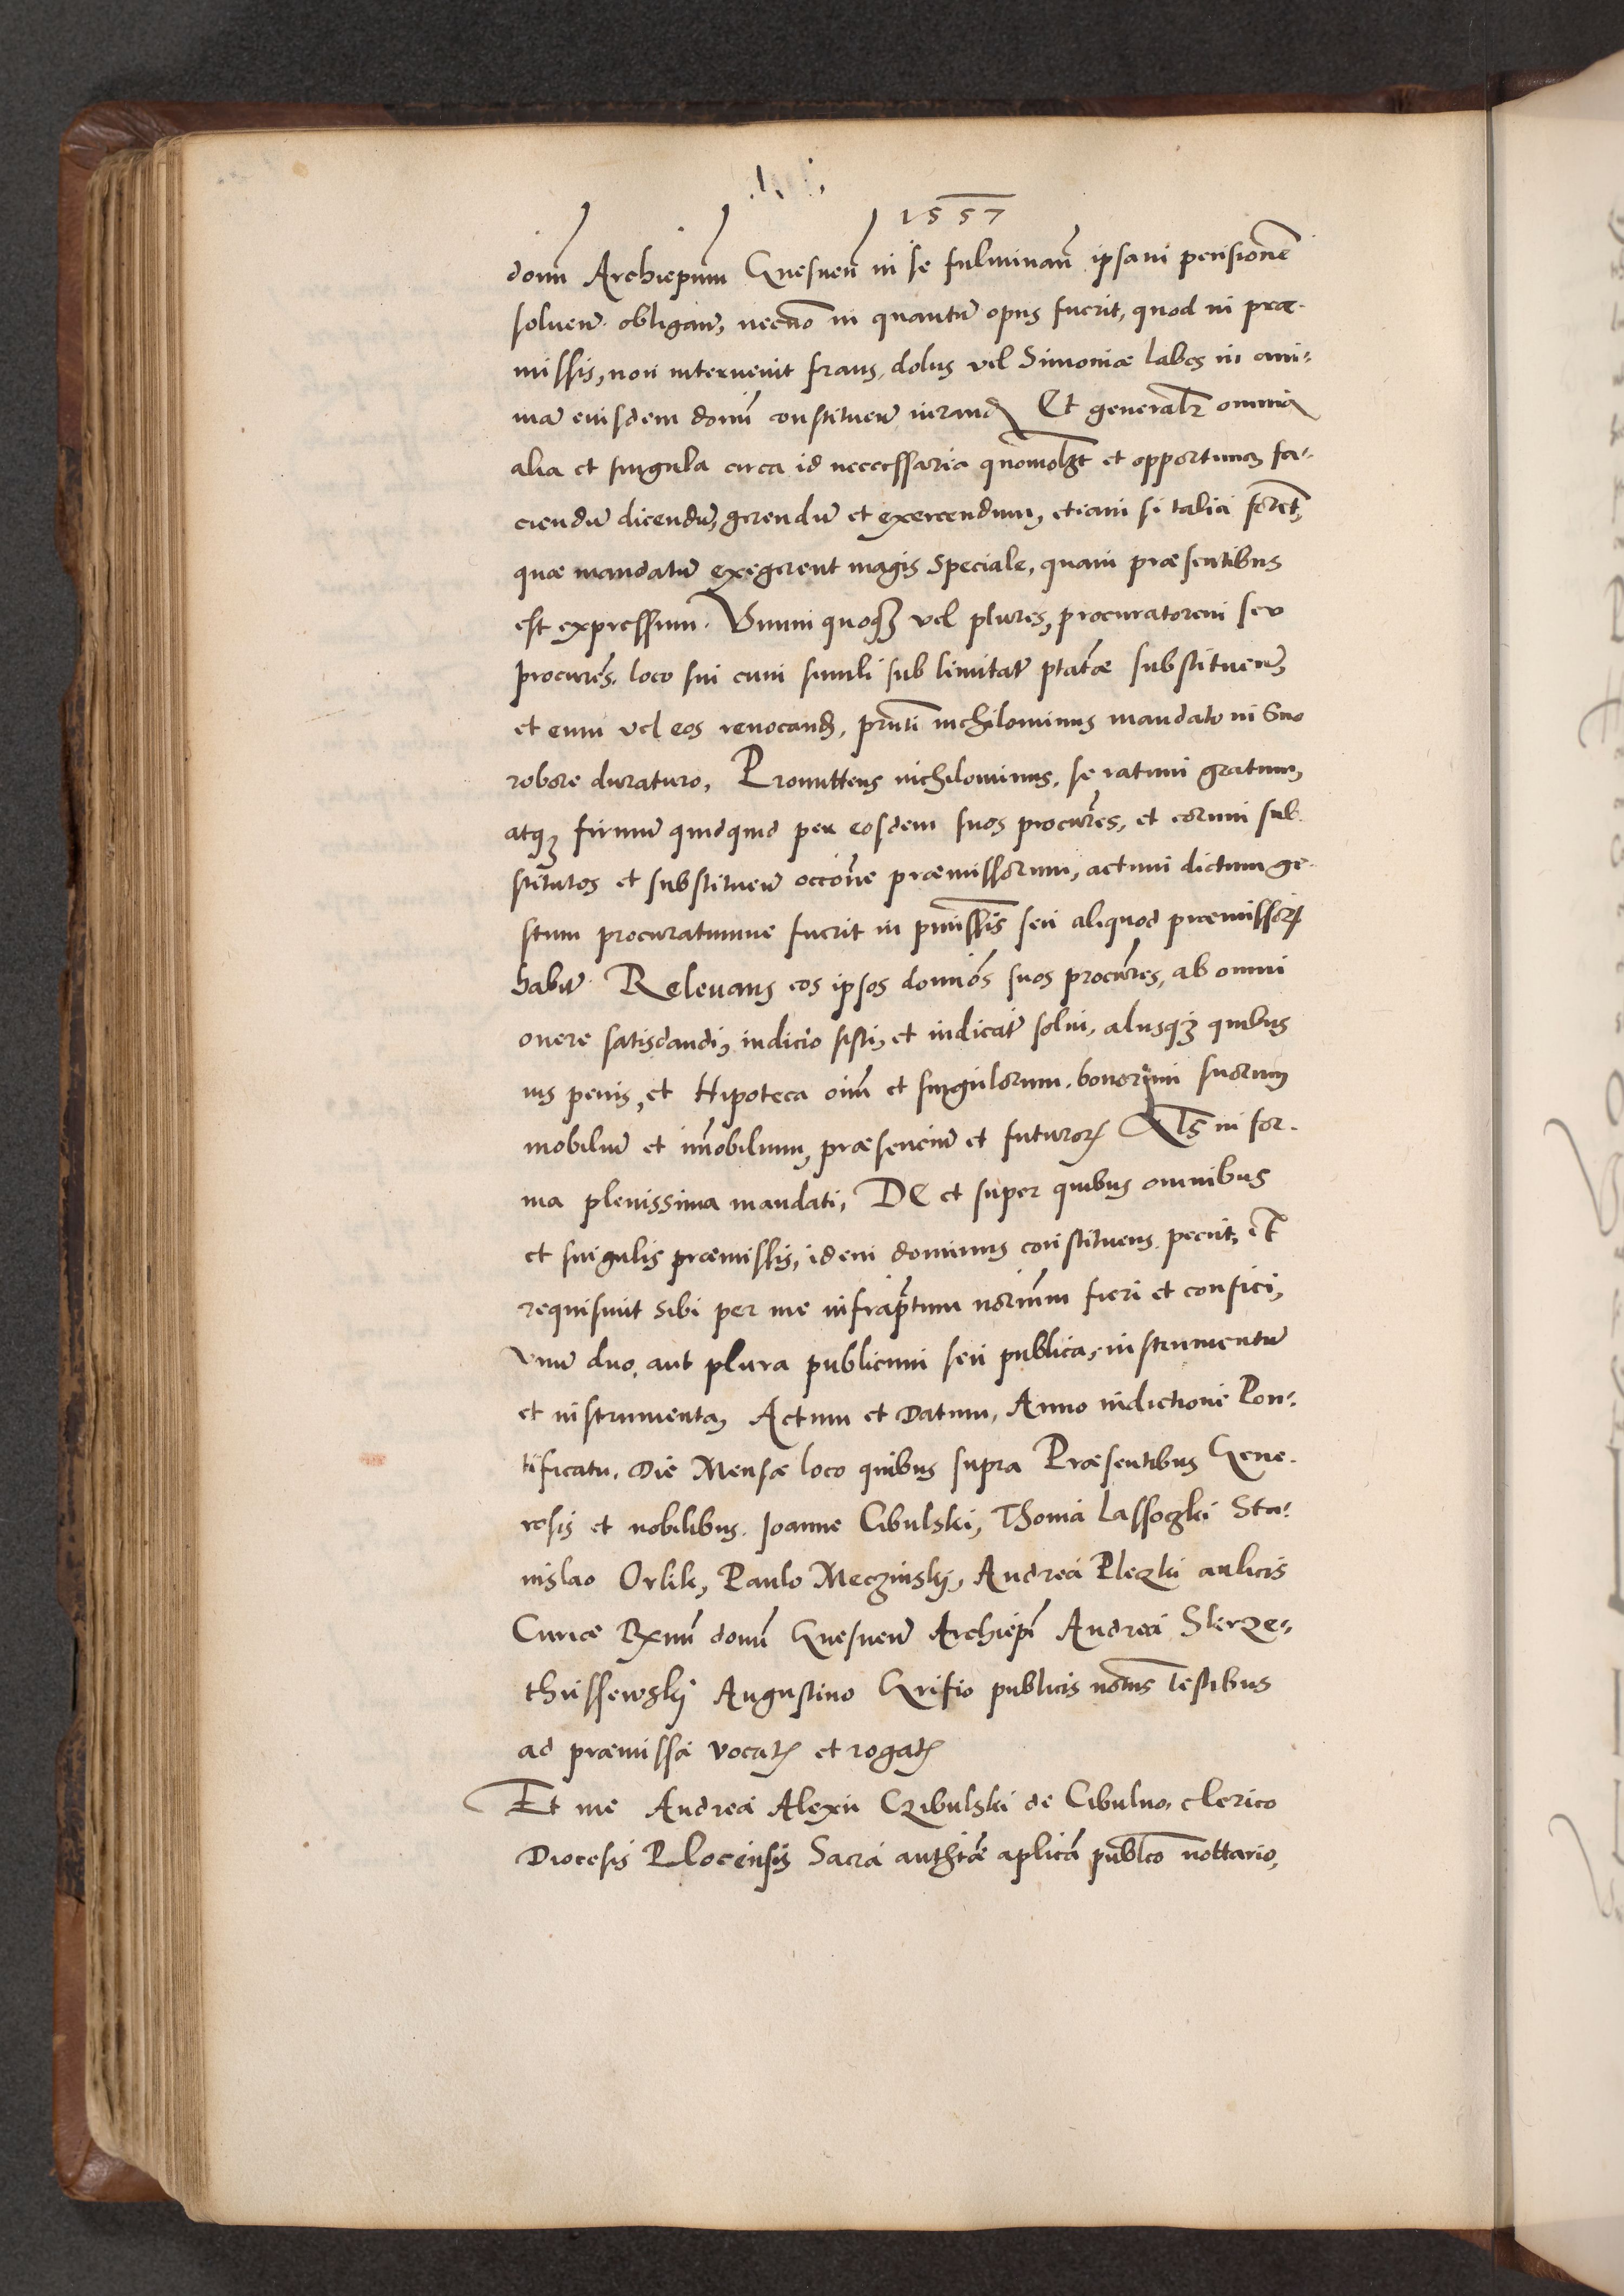 1557
domū Archiepum Gnesneñ in se fulminañ ipsam pensionē
soluenđ obliganđ, necnō in quantū opus fuerit, quod in præ-
missis, non interuenit fraus, dolus vel Simoniæ labes in ani-
mā eiusdem domī constituenť iuranđ Et generalr omnia
alia et singula circa id neccessaria quōmolȝt et opportuna fa-
ciendū dicendū, gerendū et exercendum, etiam si talia forēt,
quæ mandatū exegerent magis speciale, quam præsentibus
est expressum. Vnum quoqȝ vel plures, procuratorem seu
procurēs, loco sui cum simili sub limitatā ptatæ substituenđ
et eum vel eos reuocanđ, prnti nichilominus mandato in suo
robore duraturo, Promittens nichilominus, se ratum gratum,
atqȝ firmū quidquid per eosdem suos procurēs, et eorum sub-
stitutos et substituenđ occōne præmissorum, actum dictum ge-
stum procuratumue fuerit in pmissis seu aliquod præmissorꝝ
habiť Releuans eos ipsos domiōs suos procurēs, ab omni
onere satisdandi, iudicio sisti, et iudicať solui, alijsqȝ quibus
uis penis, et Hipoteca oim̄ et singulorum bonorum suorum
mobiliū et im̄obilium, præsenciū et futurorꝝ Als in for-
ma plenissima mandati, DE et super quibus omnibus
et singulis præmissis, idem dominus constituens petijt, et
requisiuit sibi per me infraptum norium fieri et confici,
vnū duo, aut plura publicum seu publica, instrumentū
et instrumenta, Actum et Datum, Anno indictione Pon-
tificatu, Die Mense loco quibus supra Præsentibus Gene-
rosis et nobilibus, Joanne Cibulski, Thoma Lassoczki Sta-
nislao Orlik, Paulo Męczinskj, Andrea Plezki aulicis
Curiæ Rxm̄i domī Gnesneñ Archiepī Andrea Skrze-
thussewskj Augustino Grifio publicis notarijs Testibus
ad præmissa vocatꝭ et rogatꝭ
Et me Andrea Alexii Czibulski de Cibulno, clerico
Diocesis Plocensis Sacra authtæ aplicā publco nottario,